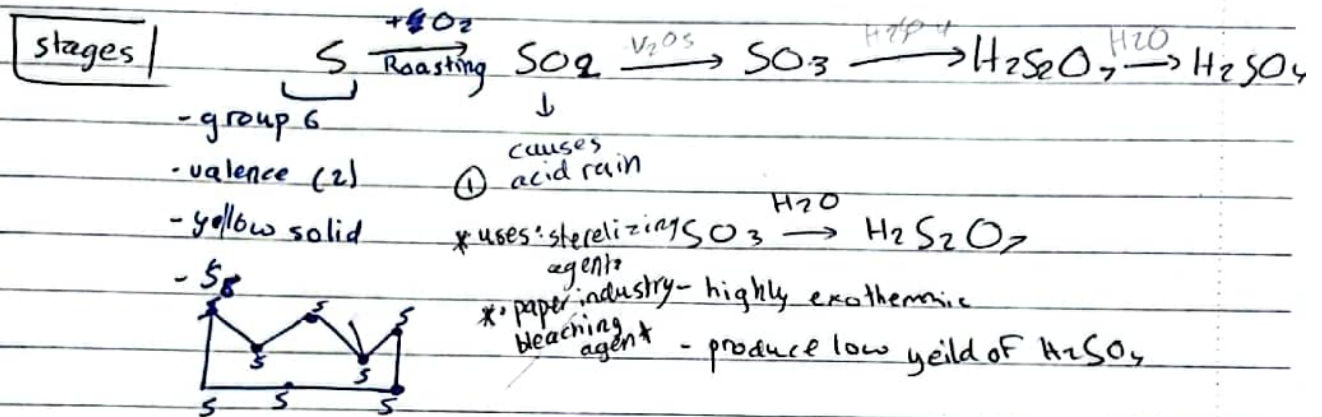 stages
S + O2 Roasting → SO2 V2O5 → SO3 → H2S2O7 H2O → H2SO4
- group 6
- valence (2)
- yellow solid
- S8
S S S S S S S S
↓
causes
① acid rain
* uses: sterelizing
agents
* paper industry
bleaching
agent
SO3 H2O → H2S2O7
- highly exothermic
- produce low yeild of H2SO4